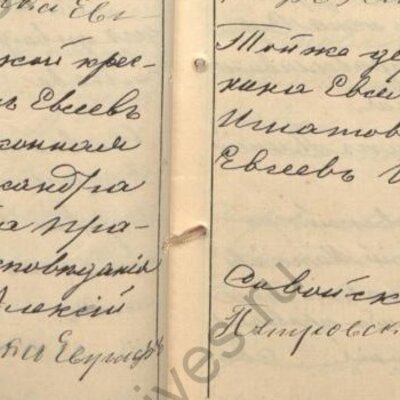 ской крес-
нъ Евсеевъ
законная
сандра
ба пра-
споведанія
Алексій
Той же де
нина Евсе
Игнатов
Евсеевъ И
Савойск
Петровск
ives.ru